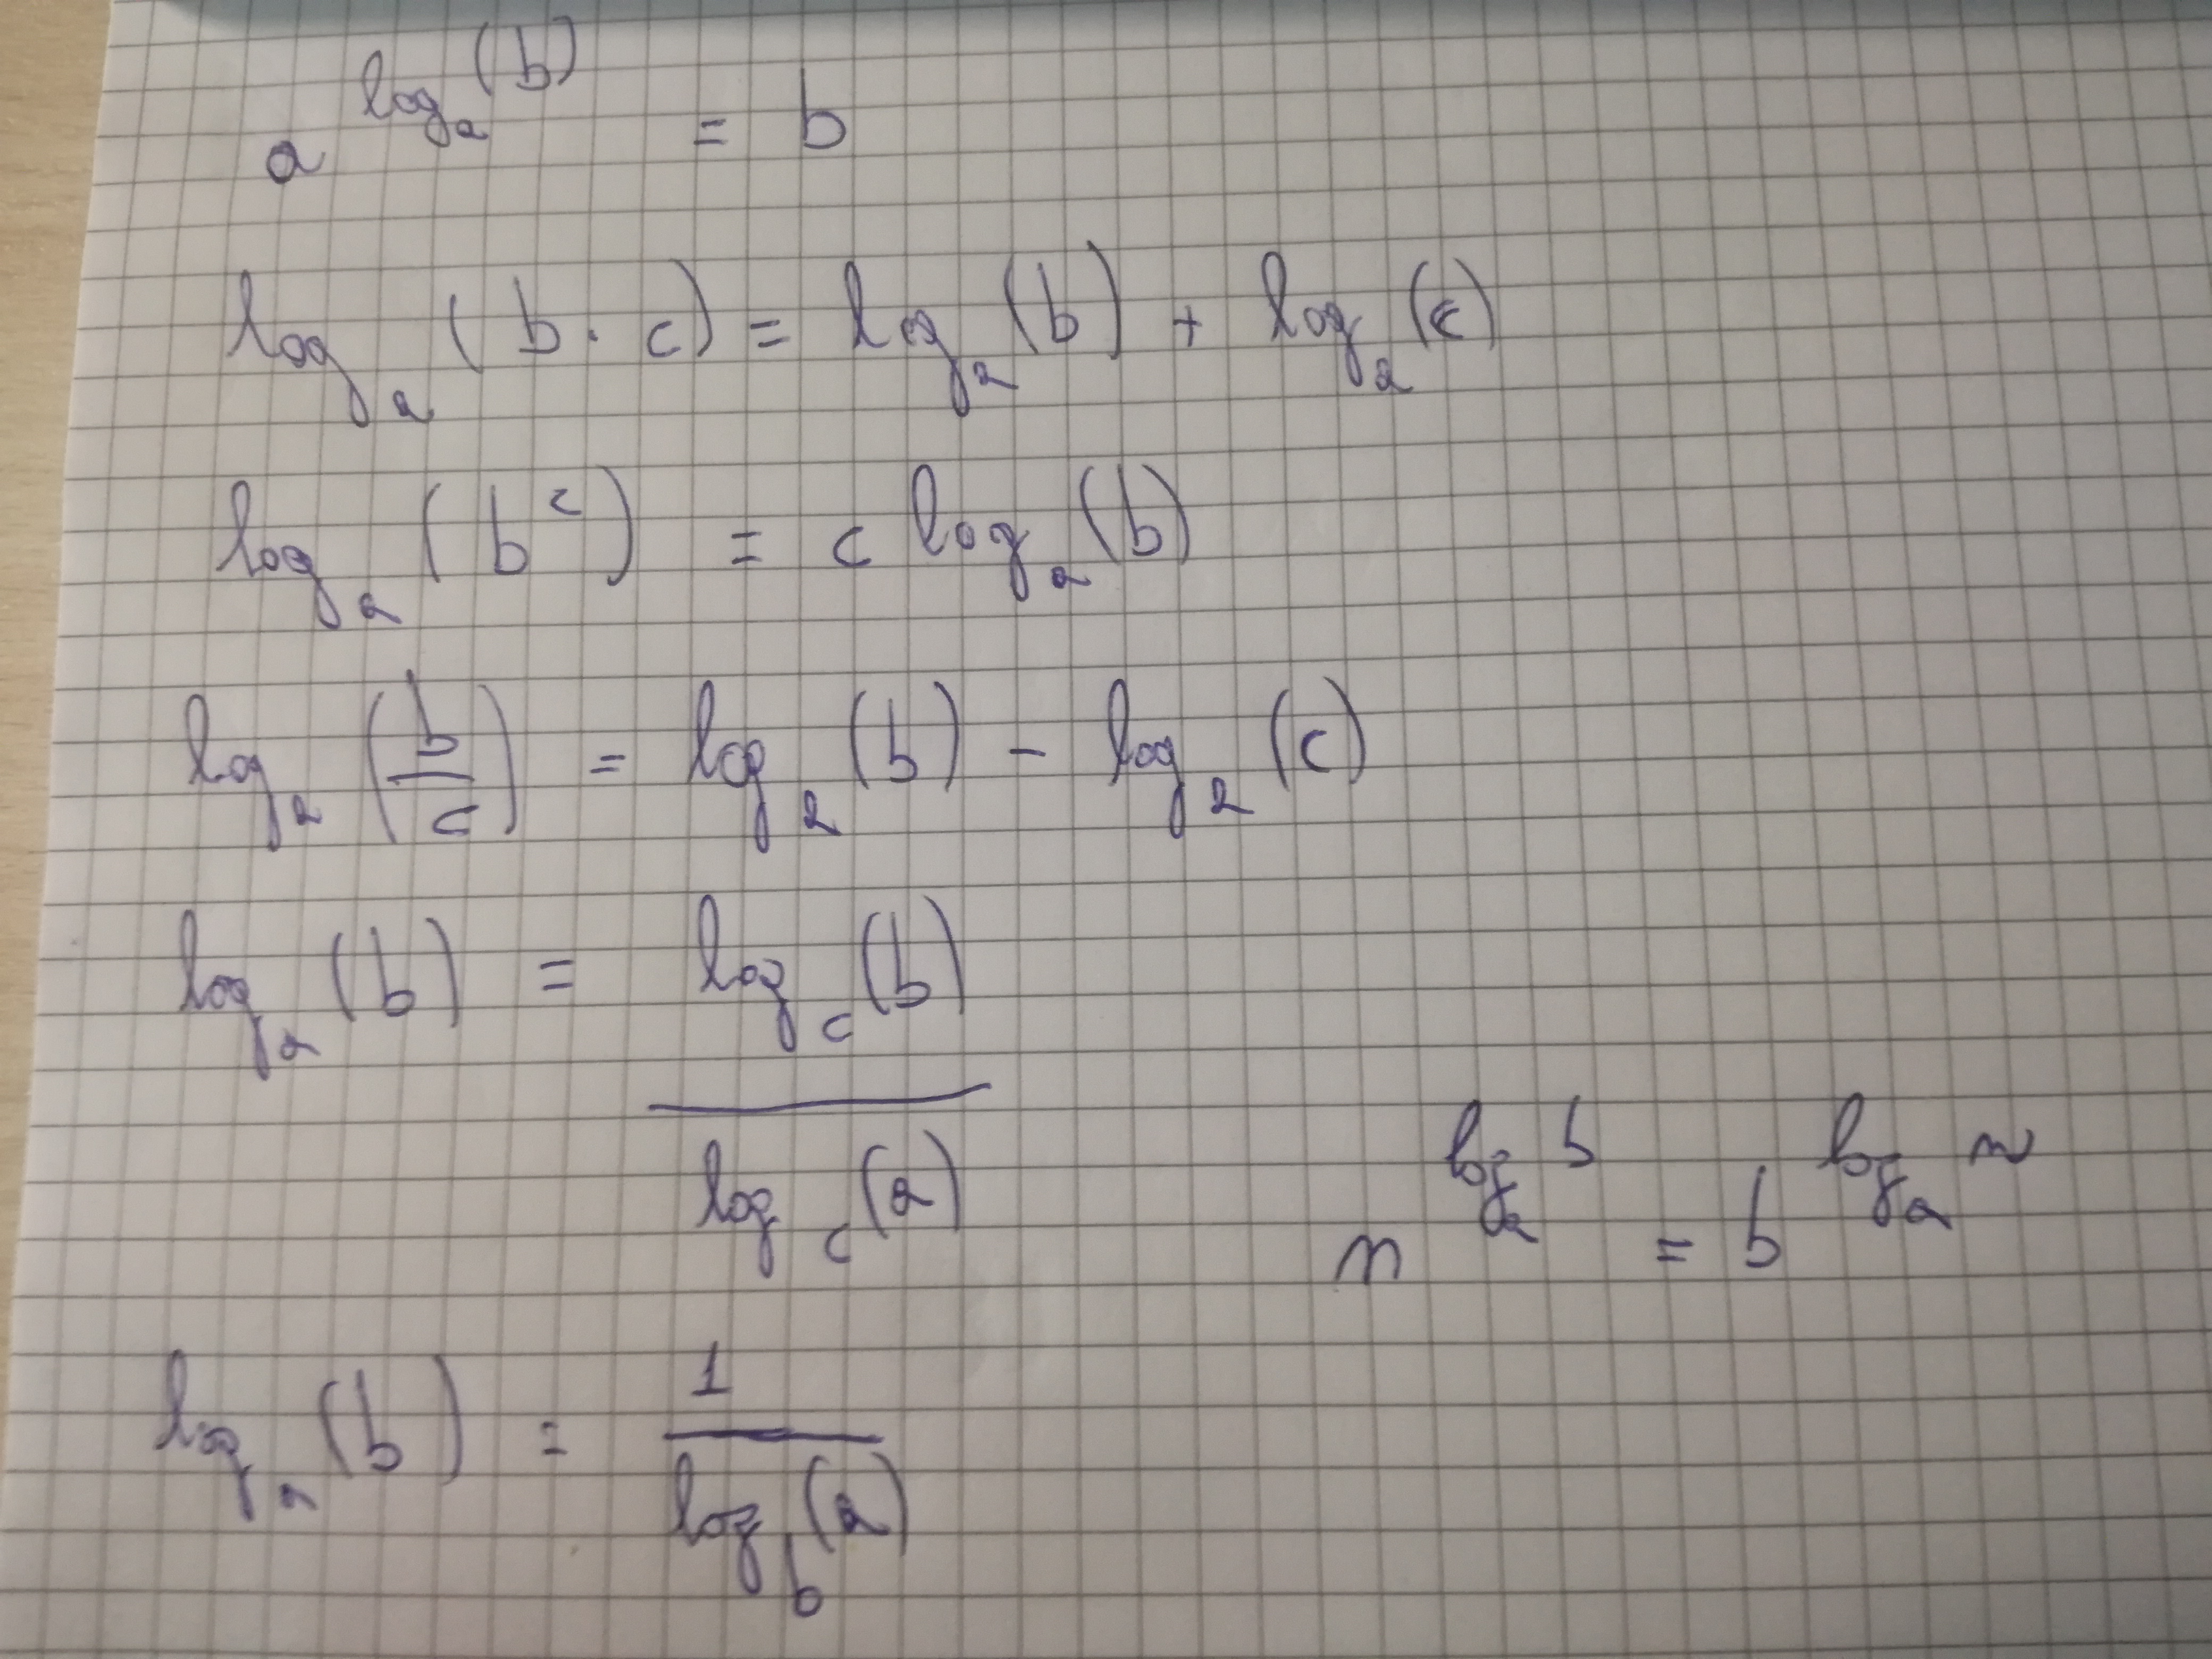 a^{log_a(b)} = b
log_a(b · c) = log_a(b) + log_a(c)
log_a(b^c) = c log_a(b)
log_a(b/c) = log_a(b) - log_a(c)
log_a(b) = log_c(b) / log_c(a)
n^{log_a b} = b^{log_a n}
log_a(b) = 1 / log_b(a)